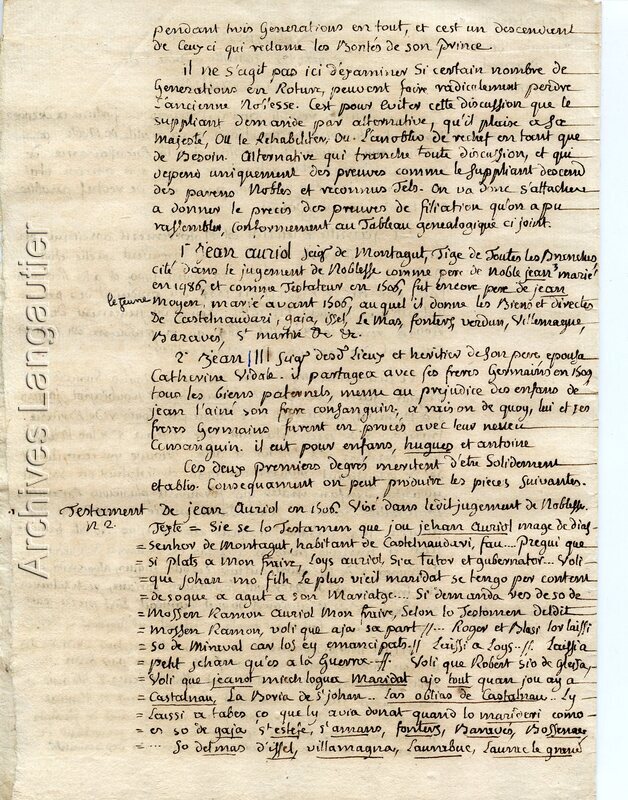 pendant trois Generations en tout, et cest un descendent
de Ceux ci qui reclame les Bontés de son prince.
il ne s'agit pas ici d'examiner Si certain nombre de
Generations en Roture, peuvent faire radicalement perdre
L'ancienne Noblesse. C'est pour eviter cette discussion que le
suppliant demande par alternative, qu'il plaise a Sa
Majesté, Ou le Rehabiliter, Ou L'anoblir de rechef en tant que
de Besoin. Alternative qui tranche toute discussion, et qui
depend uniquement des preuves comme le suppliant descend
des parens Nobles et reconnus Tels. On va donc s'attacher
a donner le precis des preuves de filiation qu'on a pu
rassembler, conformement au Tableau genealogique ci joint.
1° jean auriol seigr de Montagut, Tige de Toutes les Branches
cité dans le jugement de Noblesse comme pere de Noble jean marié
en 1486, et comme Testateur en 1506, fut encore pere de jean
le jeune
Moyen, marié avant 1506, auquel il donne les Biens et directes
de Castelnaudari, gaja, issel, Le Mas, fonters, verdun, Villemagne,
Baraves, St martin &c &c.
2° Jean III seigr desd Lieux et heritier de son pere, epousa
Catherine Vidale. il partagea avec ses freres Germains en 1509
tous les biens paternels, meme au prejudice des enfans de
jean l'ainé son frere consanguin, a raison de quoy, lui et ses
freres Germains furent en procés avec leur neveu
Consanguin. il eut pour enfans, hugues et antoine
Ces deux premiers degrés meritent d'etre Solidement
etablis. Consequament on peut produire les pieces Suivantes.
Testament de jean Auriol en 1506 Visé dans ledit jugement de Noblesse.
n 2.
Texte = Sie se lo Testamen que jou jehan Auriol mage de dias
= senhor de Montagut, habitant de Castelnaudari, fau.... Pregui que
= si plats a Mon fraire, Loys auriol, Sia tutor et gubernator... Voli
= que Johan mo filh Le plus vieil maridat se tengo per content
= de so que a agut a son Mariatge.... Si demanda res de so de
= Mossen Ramon Auriol Mon fraire, Selon lo Testomen deldit
= mossen Ramon, voli que aja sa part //... Roger et Blasi lor laissi
= so de Mireval car los ey emancipats // Laissi a Loys.. // Laissi a
= petit jehan qu'es a la Guerra // Voli que Robert sio de gleisa,
= Voli que jeanot miech logua Maridat ajo tout quan jou ay a
= Castalnau, La Boria de St johan.. Las oblias de Castalnau.. Ly
= Laissi a tabes ço que ly avia donat quand lo marideri como
= es so de gaja St esteje, St amans, fonters, Baraves,
= ... So del mas d'issel, villamagna, Laurabuc, Laurac le grand
Archives Langautier